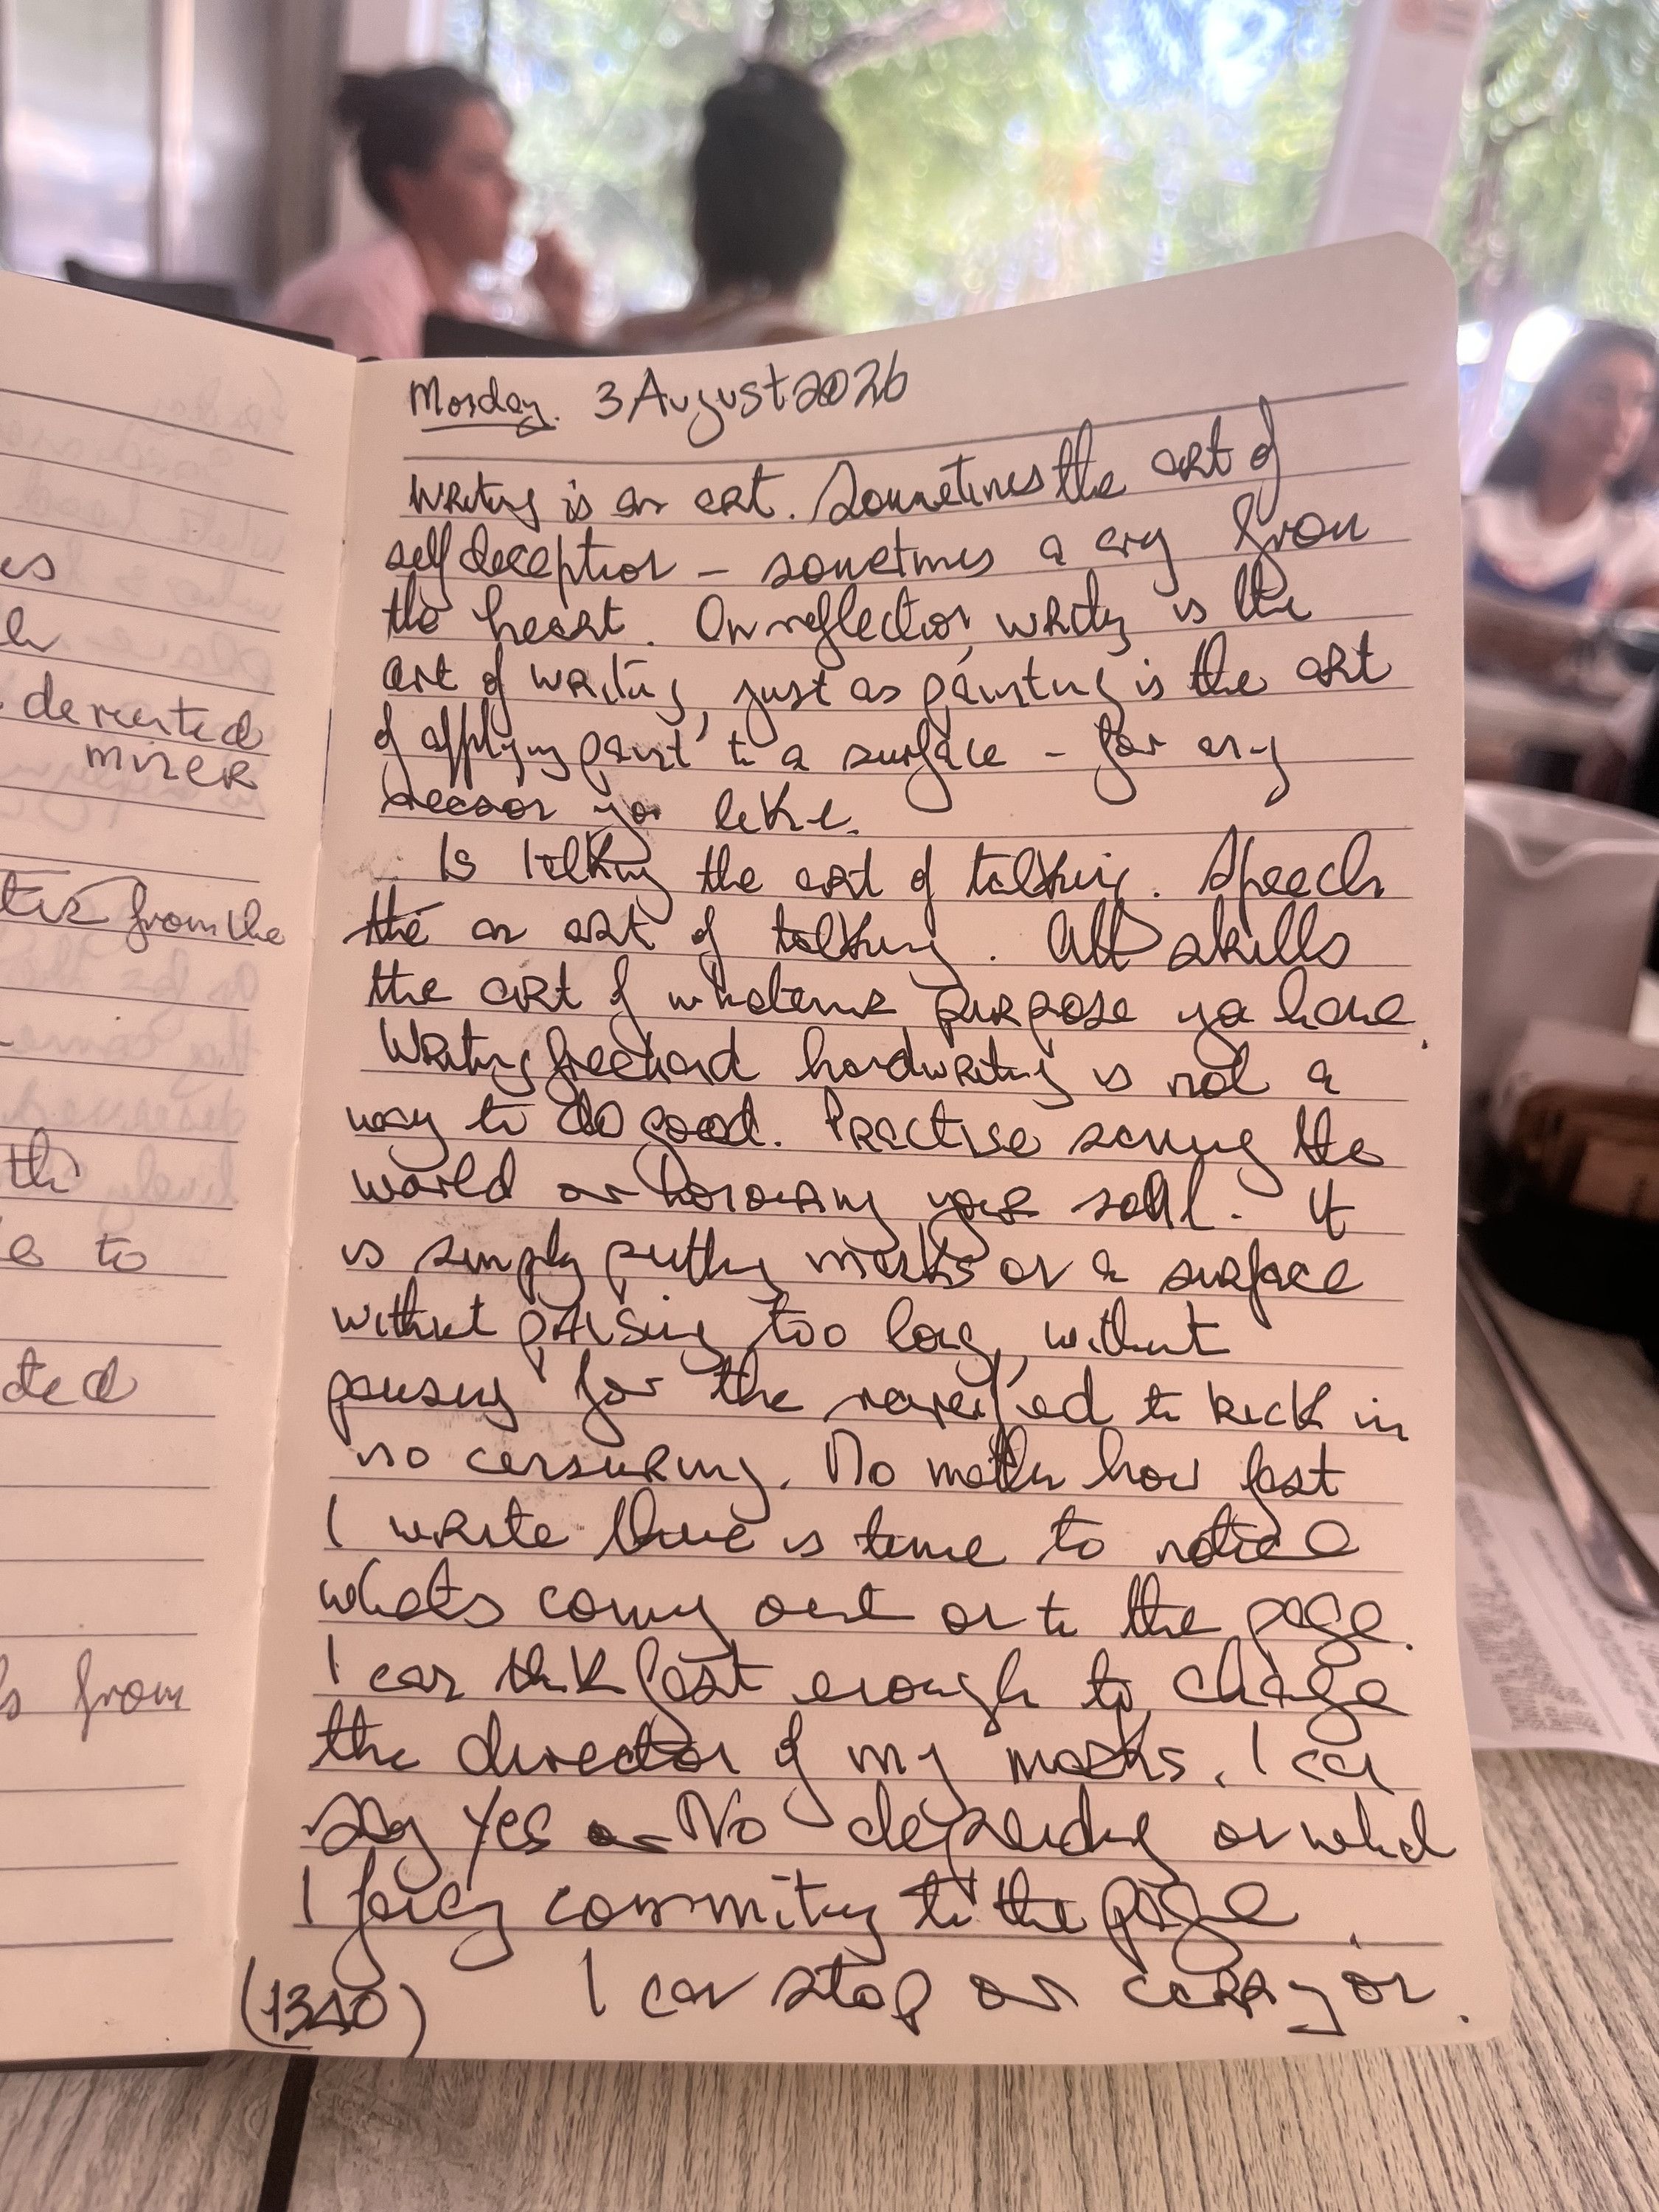 es
demented
mixer
from the
th
e to
ted
s from
Monday. 3 August 2026
Writing is an art. Sometimes the art of
self deception – sometimes a cry from
the heart. On reflection, writing is the
art of writing, just as painting is the art
of applying paint to a surface – for any
reason you like.
Is talking the art of talking. Speech
the an art of talking. All skills
the art of whatever purpose you have.
Writing freehand handwriting is not a
way to do good. Practise saving the
world or honouring your soul. It
is simply putting marks on a surface
without pausing too long, without
pausing for the to kick in
no censuring. No matter how fast
I write there is time to notice
what's coming out on to the page.
I can think fast enough to change
the direction of my marks. I can
say Yes or No depending on what
I fancy committing to the page.
(1340) I can stop or carry on.